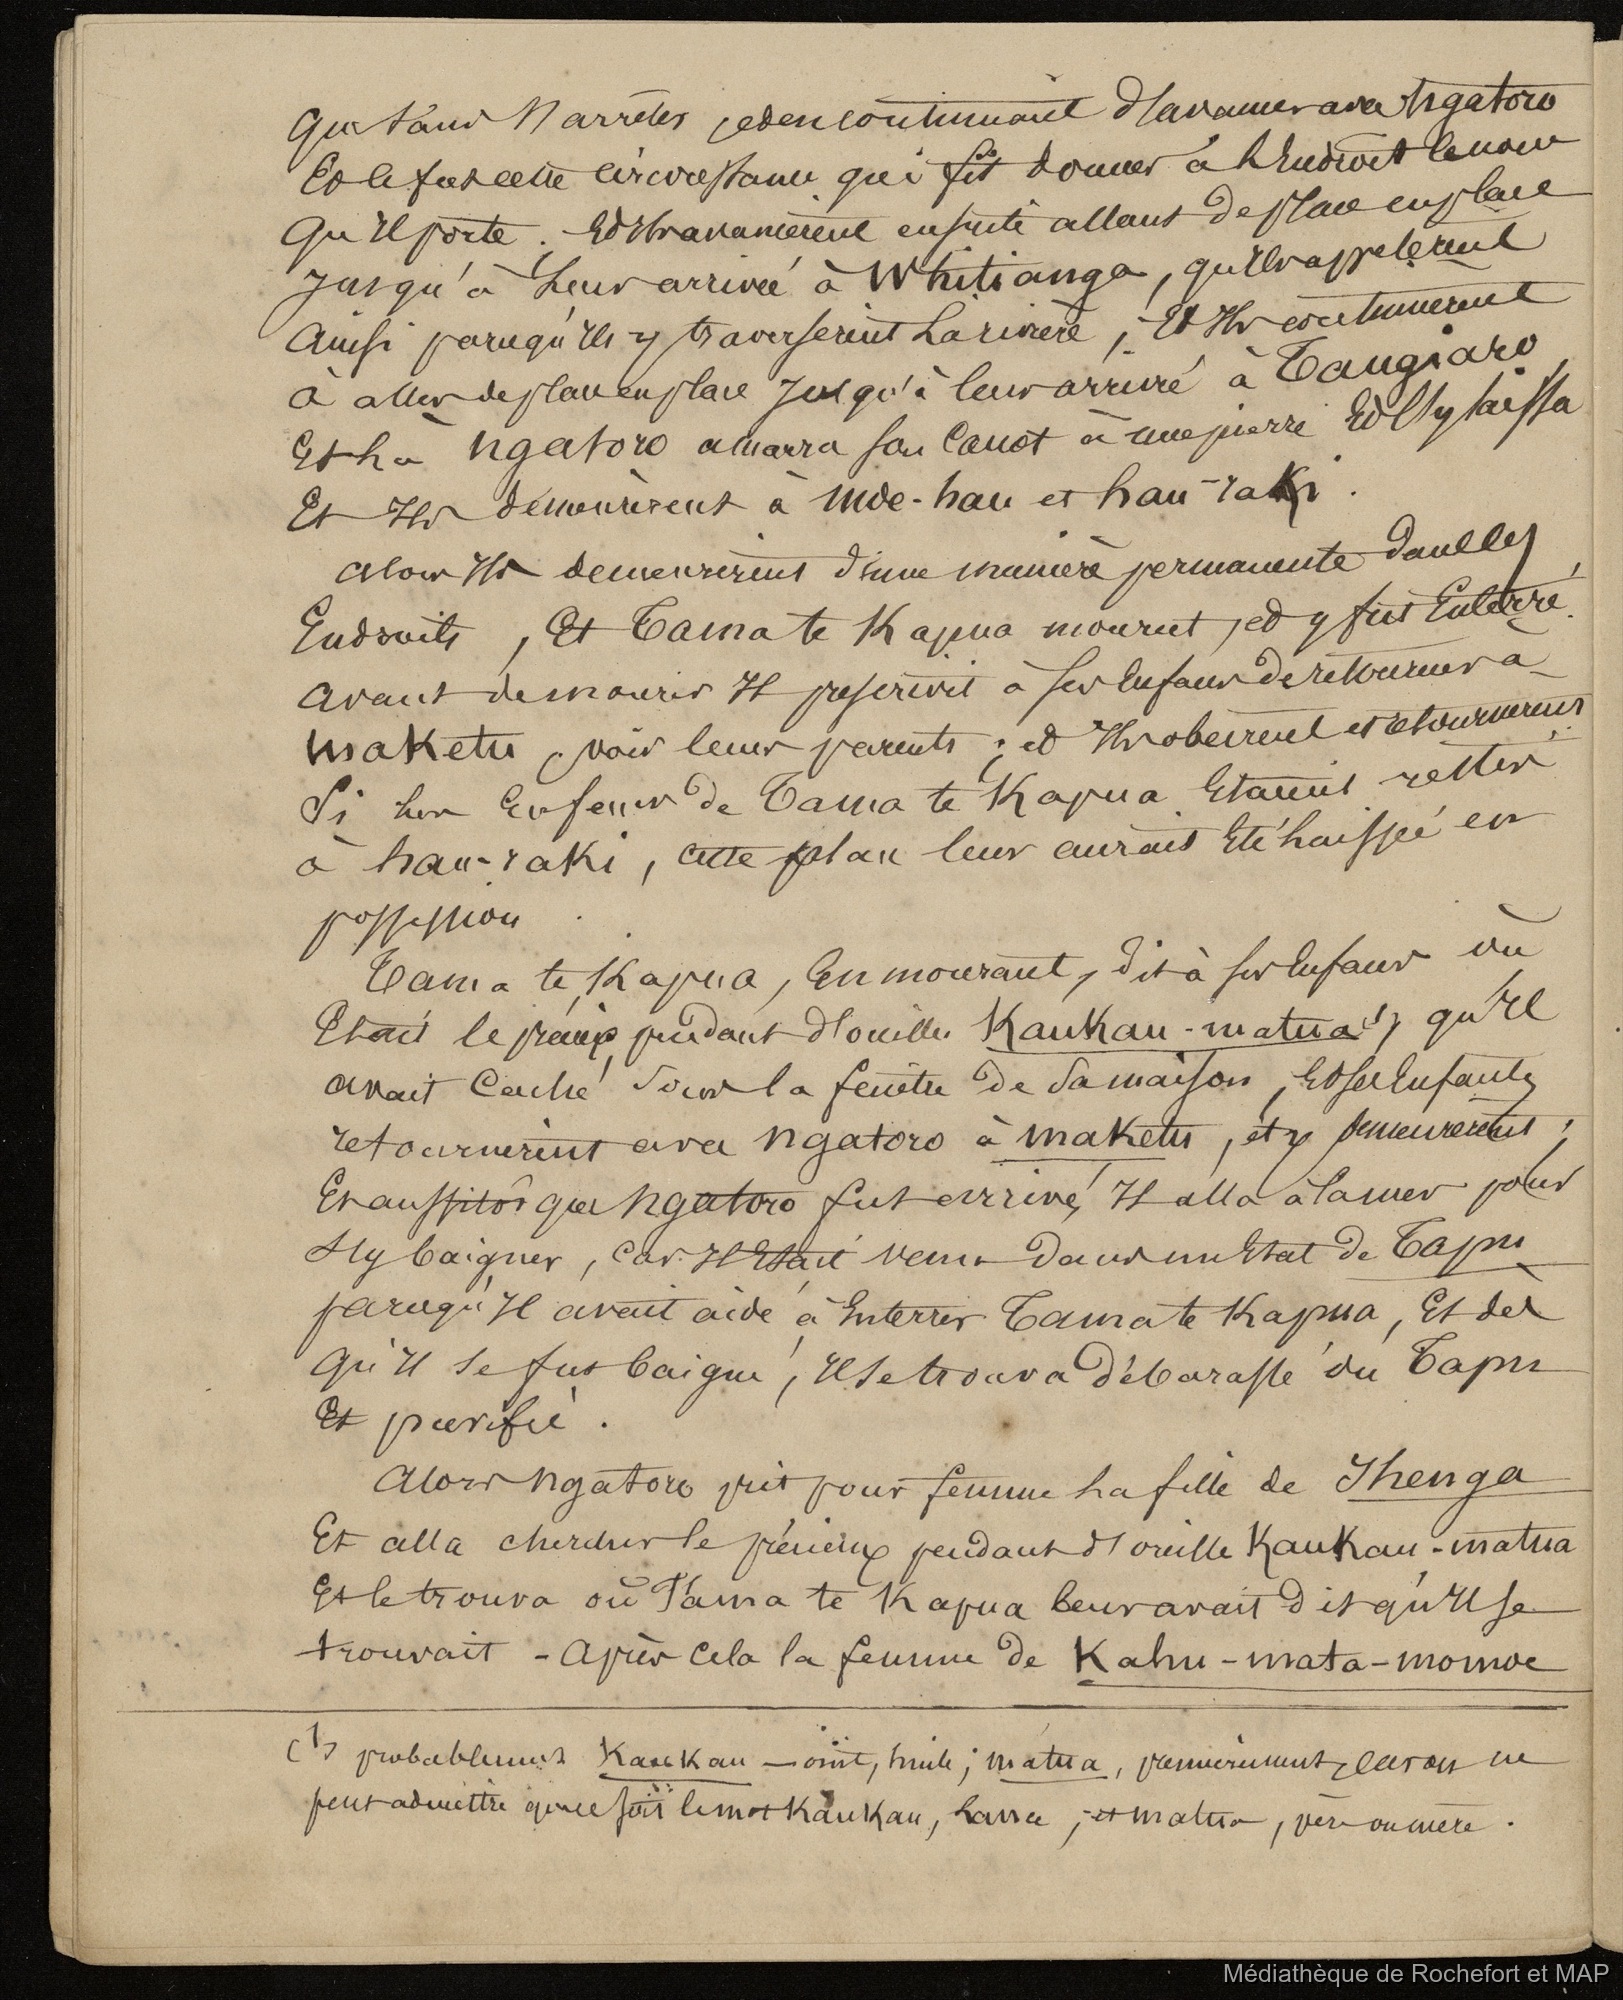 que sans s'arrêter, et en continuant d'avancer avec Ngatoro
Et ce fut cette circonstance qui fit donner à l'Endroit le nom
qu'Il porte. Et Ils avancèrent ensuite allant de place en place
Jusqu'à leur arrivée à Whitianga, qu'Ils appelèrent
Ainsi parcequ'Ils y traversèrent la rivière ; Et Ils continuèrent
à aller de place en place Jusqu'à leur arrivée à Tangiaro,
Et là Ngatoro amarra son Canot à une pierre Et l'y laissa
Et Ils demeurèrent à Moe-hau et hau-raki.
Alors Ils demeurèrent d'une manière permanente dans les
Endroits, Et Tama te Kapua mourut, et y fut Enterré.
Avant de mourir Il prescrivit à ses Enfans de retourner à
maketu, voir leurs parents ; et Ils obéirent et retournèrent
Si les Enfans de Tama te Kapua Etaient restés
à hau-raki, cette place leur aurait Eté laissée en
possession.
Tama te Kapua, En mourant, dit à ses Enfans où
Etait le précieux pendant d'oreilles Kaukau-matua (1), qu'Il
avait Caché sous la fenêtre de sa maison, Et ses Enfants
retournèrent avec Ngatoro à maketu, et y demeurèrent ;
Et aussitôt que Ngatoro fut arrivé, Il alla à la mer pour
s'y baigner, car Il Etait venu dans un Etat de Tapu
parcequ'Il avait aidé à Enterrer Tama te Kapua, Et dès
qu'Il se fut baigné, Il se trouva débarassé du Tapu
Et purifié.
Alors Ngatoro prit pour femme la fille de Ihenga
Et alla chercher le précieux pendant d'oreille Kaukau-matua
Et le trouva où Tama te Kapua leur avait dit qu'Il se
trouvait - Après cela la femme de Kahu-mata-momoe
(1) probablement Kaukau — oint, huile ; matua, premièrement, car on ne
peut admettre que ce soit le mot Kaukau, lance ; et matua, père ou mère.